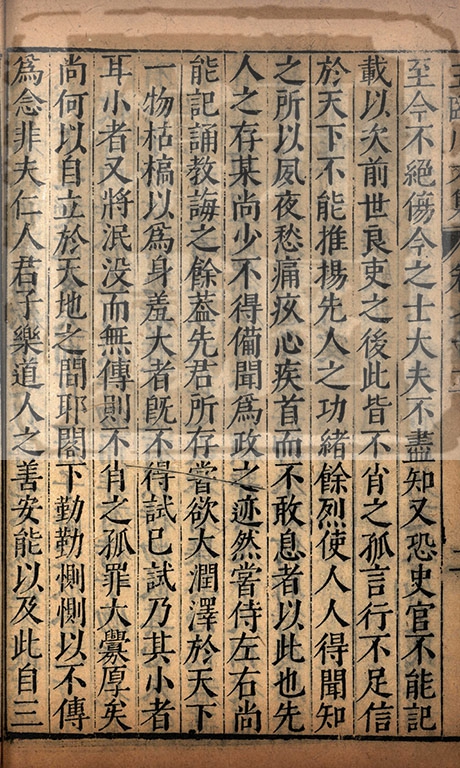 至今不絕傷今之士大夫不盡知又恐史官不能記
載以次前世良吏之後此皆不肖之孤言行不足信
於天下不能推揚先人之功緒餘烈使人人得聞知
之所以夙夜愁痛疚心疾首而不敢息者以此也先
人之存某尚少不得備聞爲政之迹然嘗侍左右尚
能記誦教誨之餘蓋先君所存嘗欲大潤澤於天下
一物枯槁以爲身羞大者旣不得試已試乃其小者
耳小者又將泯没而無傳則不肖之孤罪大釁厚矣
尚何以自立於天地之間耶閣下勤勤惻惻以不傳
爲念非夫仁人君子樂道人之善安能以及此自三